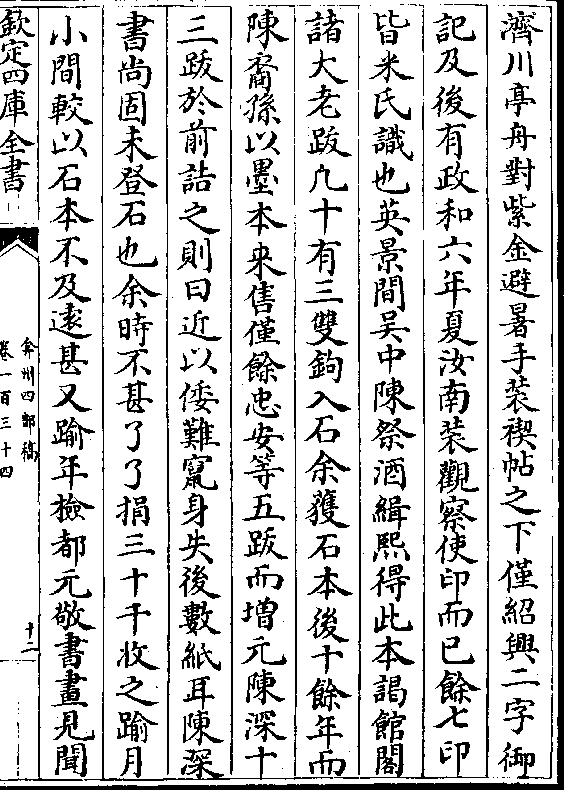 濟川亭舟對紫金避暑手装禊帖之下僅紹興二字御
記及後有政和六年夏汝南装觀察使印而已餘七印
皆米氏識也英景間吴中陳祭酒緝熙得此本謁館閣
諸大老跋凡十有三雙鉤入石余獲石本後十餘年而
陳裔孫以墨本来售僅餘忠安等五跋而増元陳深十
三跋於前詰之則曰近以倭難竄身失後數紙耳陳深
書尚固未登石也余時不甚了了捐三十千收之踰月
小間較以石本不及逺甚又踰年檢都元敬書畫見聞
欽定四庫全書
弇州四部稿
卷一百三十四
十二